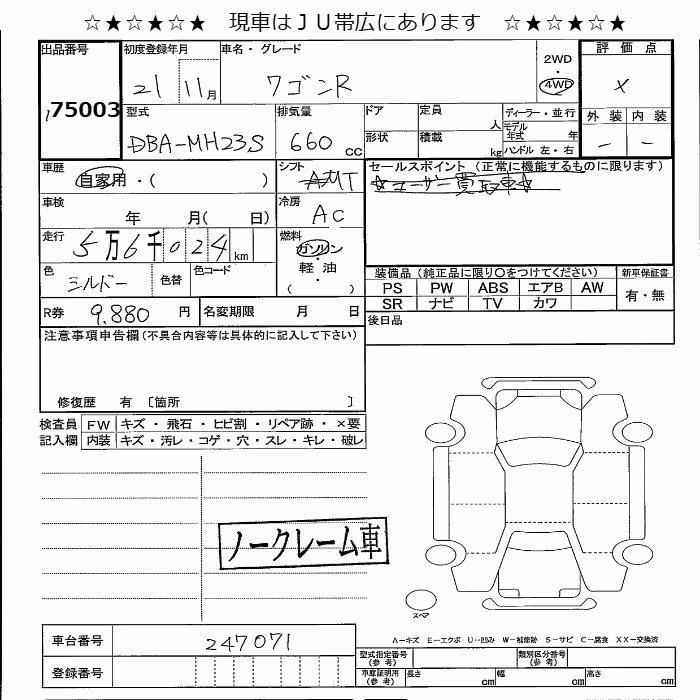 ☆★☆★☆★ 現車はＪＵ帯広にあります ☆★☆★☆★
出品番号 初度登録年月 車名・グレード 2WD 評価点
21 11月 ワゴンR 4WD X
75003 型式 排気量 ドア 定員 人 ディーラー・並行 外装 内装
DBA-MH23S 660 cc 形状 積載 kg モデル年式 年 ハンドル 左・右 － －
車歴 自家用・( ) シフト AMT セールスポイント (正常に機能するものに限ります)
☆ユーザー買取車☆
車検 年 月( 日) 冷房 AC
走行 5万6千024km 燃料 ガソリン・軽油
( ・ )
色 シルバー 色替 色コード 装備品 (純正品に限り○をつけてください) 新車保証書
PS PW ABS エアB AW 有・無
SR ナビ TV カワ
R券 9.880 円 名変期限 月 日 後日品
注意事項申告欄(不具合内容等は具体的に記入して下さい)
修復歴 有 〔箇所 〕
検査員 FW キズ・飛石・ヒビ割・リペア跡・×要
記入欄 内装 キズ・汚レ・コゲ・穴・スレ・キレ・破レ
ノークレーム車
スペア
A－キズ E－エクボ U－凹み W－補修跡 S－サビ C－腐食 XX－交換済
車台番号 247071 型式指定番号(参考) 類別区分番号(参考)
登録番号 車庫証明用(参考) 長さ cm 幅 cm 高さ cm